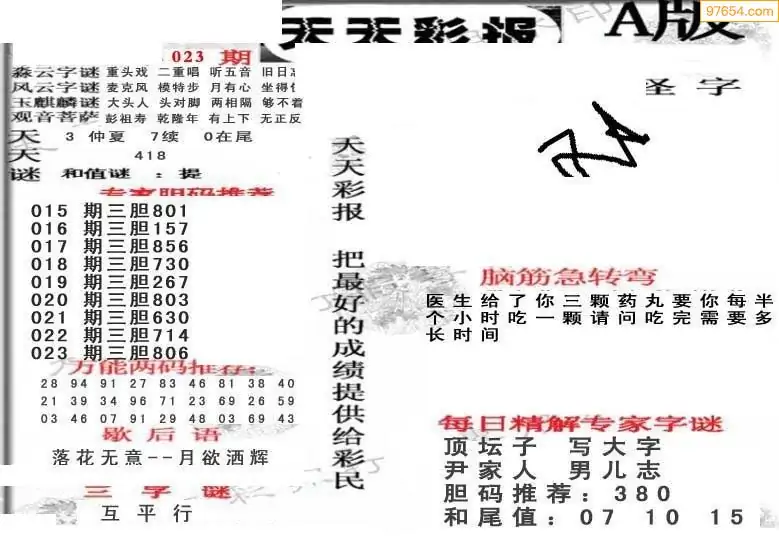 天天彩报
A版
97654.com
023 期
森云字谜 重头戏 二重唱 听五音
风云字谜 麦克风 模特步 月有心
玉麒麟谜 大头人 头对脚 两相隔 够不着
观音菩萨 彭祖寿 乾隆年 有上下 无正反
天 3 仲夏 7续 0在尾
天 418
谜 和值谜 : 提
专家胆码推荐
015 期三胆801
016 期三胆157
017 期三胆856
018 期三胆730
019 期三胆267
020 期三胆803
021 期三胆630
022 期三胆714
023 期三胆806
万能两码推荐:
28 94 91 27 83 46 81 38 40
21 39 34 96 71 23 69 26 59
03 46 07 91 29 48 03 69 43
歇后语
落花无意--月欲洒辉
三字谜
互平行
天天彩报 把最好的成绩提供给彩民
怪字
脑筋急转弯
医生给了你三颗药丸要你每半
个小时吃一颗请问吃完需要多
长时间
每日精解专家字谜
顶坛子 写大字
尹家人 男儿志
胆码推荐:380
和尾值:07 10 15